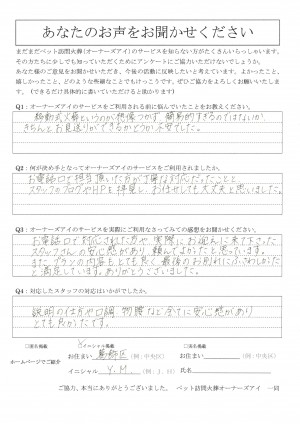 あなたのお声をお聞かせください
まだまだペット訪問火葬(オーナーズアイ)のサービスを知らない方がたくさんいらっしゃいます。
そのお力になるためにアンケートにご協力いただけないでしょうか。
あなた様のご意見をお聞かせいただき、今後の活動に反映したいと考えています。よかったこと、
嬉しかったこと、どのような些細なことでもけっこうです。ぜひご協力をよろしくお願いいたします。
(できるだけ具体的に書いていただけると助かります)
Q1:オーナーズアイのサービスをご利用される前に悩んでいたことをお教えください。
移動式火葬というのが想像つかず、簡易的すぎるのではないか、
きちんとお見送りができるかどうか不安でした。
Q2:何が決め手となってオーナーズアイのサービスをご利用されましたか。
お電話口で担当頂いた方が丁寧な対応だったことと
スタッフのブログやHPを拝見し、お任せしても大丈夫と思いました。
Q3:オーナーズアイのサービスを実際にご利用になさってみての感想をお聞かせください。
お電話口で対応された方や実際にお迎えに来て下さった
スタッフさんの安心感があり、頼んでよかったと思っています。
また、プランの内容もとても良く、最後のお別れにふさわしかった
と満足しています。ありがとうございました。
Q4:対応したスタッフの対応はいかがでしたか。
説明の仕方や口調、物腰など全てに安心感があり
とても良かったです。
□実名掲載 イニシャル掲載 □匿名掲載
ホームページでご紹介 お住まい 葛飾区 (例:中央区) お住まい (例:中央区)
イニシャル Y.M. (例:J.H) 氏名
ご協力、本当にありがとうございました。 ペット訪問火葬オーナーズアイ 一同